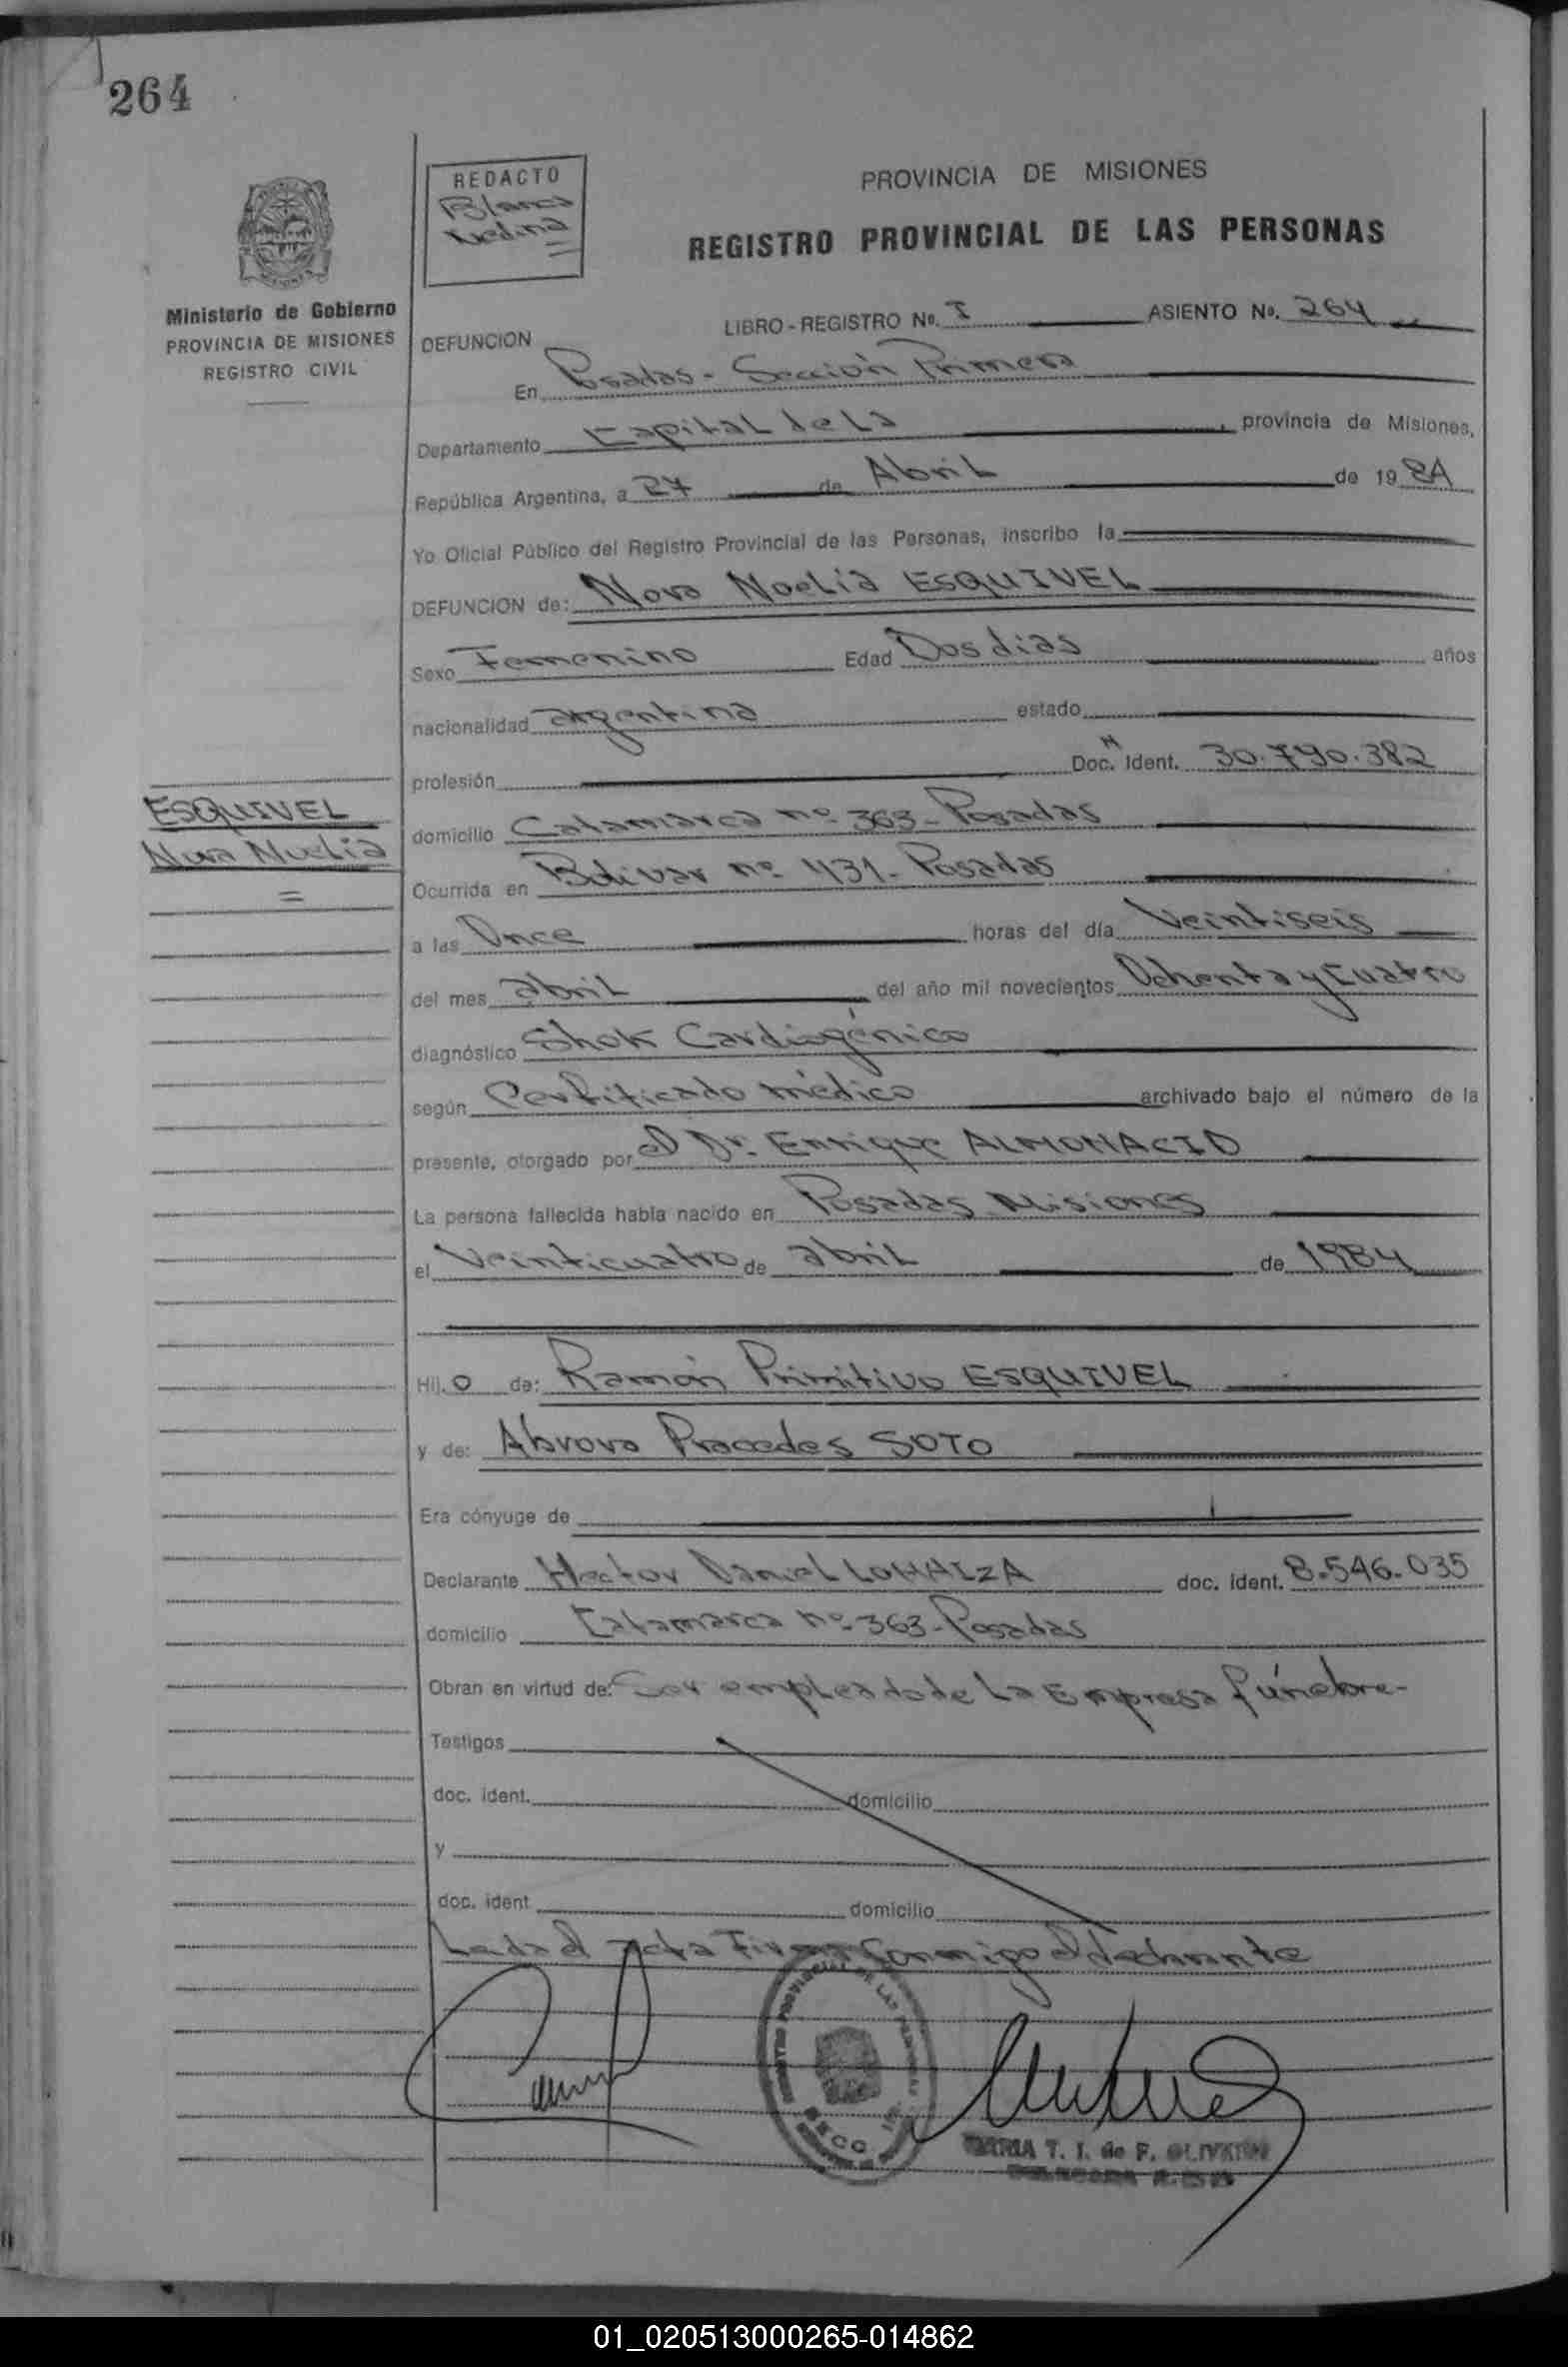 264
REDACTO
Blanca
Medina
PROVINCIA DE MISIONES
REGISTRO PROVINCIAL DE LAS PERSONAS
Ministerio de Gobierno
PROVINCIA DE MISIONES
REGISTRO CIVIL
LIBRO - REGISTRO Nº. I ASIENTO Nº. 264
DEFUNCION
En Posadas - Sección Primera
Departamento Capital de La , provincia de Misiones,
República Argentina, a 27 de Abril de 1984
Yo Oficial Público del Registro Provincial de las Personas, inscribo la
DEFUNCION de: Nora Noelia ESQUIVEL
Sexo Femenino Edad Dos dias años
nacionalidad argentina estado
profesión Doc. Ident. 30.790.382
ESQUIVEL
Nora Noelia
domicilio Catamarca nº 363 - Posadas
Ocurrida en Bolivar nº 431 - Posadas
a las Once horas del día Veintiseis
del mes abril del año mil novecientos Ochenta y Cuatro
diagnóstico Shok Cardiogénico
según Certificado médico archivado bajo el número de la
presente, otorgado por el Dr. Enrique ALMONACID
La persona fallecida había nacido en Posadas Misiones
el Veinticuatro de abril de 1984
Hij o de: Ramón Primitivo ESQUIVEL
y de: SOTO
Era cónyuge de
Declarante Hector Daniel doc. ident. 8.546.035
domicilio Catamarca nº 363 - Posadas
Obran en virtud de: Ser empleado de La Empresa fúnebre -
Testigos
doc. ident. domicilio
y
doc. ident domicilio
Leida el acta Firma conmigo el declarante
REGISTRO PROVINCIAL DE LAS PERSONAS
MARIA T. I. de F.
01_020513000265-014862